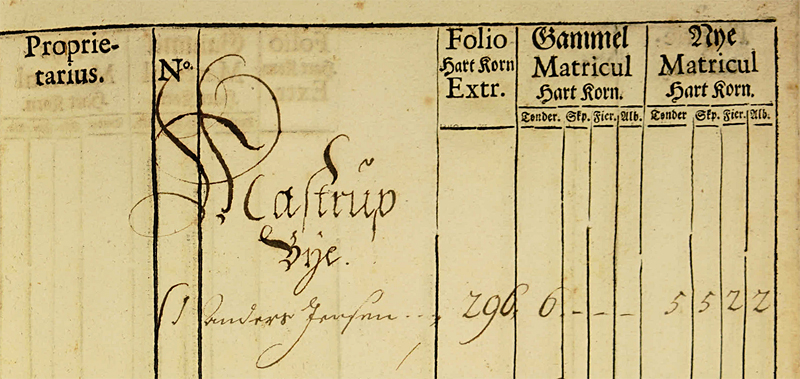 Proprie-
tarius.
No.
Folio
Hart Korn
Extr.
Gammel
Matricul
Hart Korn.
Tønder. Skp. Fier. Alb.
Nye
Matricul
Hart Korn.
Tønder Skp. Fier. Alb.
Mastrup
Bÿe.
1 Anders Jensen - - 296. 6. - - - 5 5 2 2